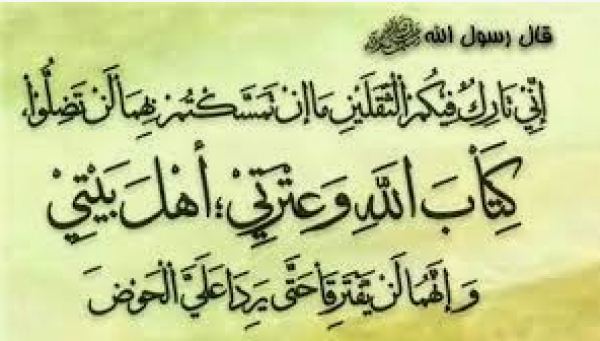 قال رسول الله ﷺ
إِنِّي تَارِكٌ فِيكُمُ الثَّقَلَيْنِ مَا إِنْ تَمَسَّكْتُمْ بِهِمَا لَنْ تَضِلُّوا،
كِتَابَ اللَّهِ وَعِتْرَتِي؛ أَهْلَ بَيْتِي
وَإِنَّهُمَا لَنْ يَفْتَرِقَا حَتَّى يَرِدَا عَلَيَّ الْحَوْضَ